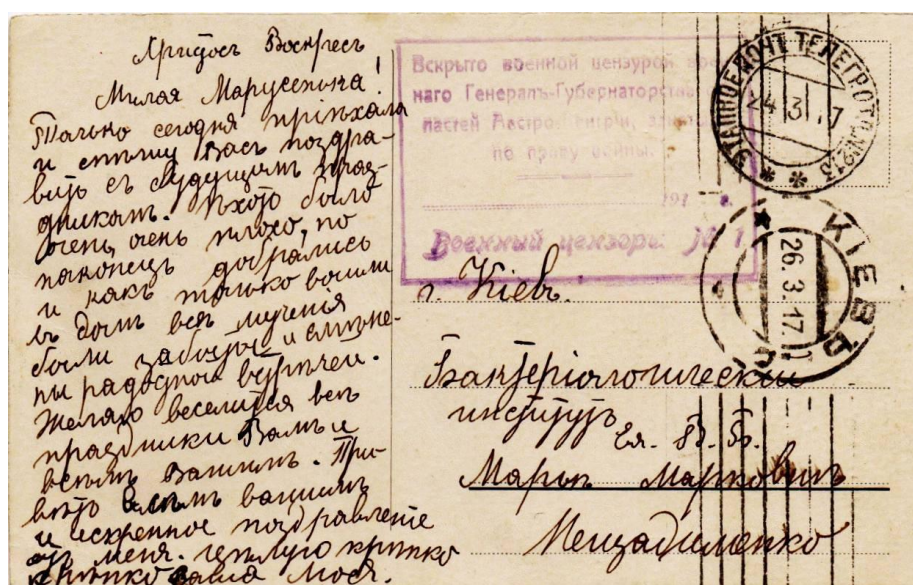 Христосъ Воскресъ
Милая Марусенька!
Только сегодня пріѣхала
и спѣшу Васъ поздра-
вить съ будущимъ праз-
дникомъ. Ѣхать было
очень, очень плохо, но
наконецъ добрались
и какъ только вошли
въ домъ всѣ мученія
были забыты и смѣне-
ны радостной встрѣчей.
Желаю веселиться всѣ
праздники Вамъ и
всѣмъ Вашимъ. При-
вѣтъ всѣмъ вашимъ
и искреннее поздравленіе
отъ меня. Цѣлую крѣпко
крѣпко ваша
Вскрыто военной цензурой
наго Генералъ-Губернаторства
ластей Австро-Венгріи,
по праву войны.
191 г.
Военный цензоръ № 1
ЭТАПНОЕ ПОЧТ. ТЕЛЕГР. ОТД. №213
24 3 17
КІЕВЪ
26.3.17
г. Кіевъ.
Бактеріологическій
институтъ
Марьѣ Марковнѣ
Мещадименко